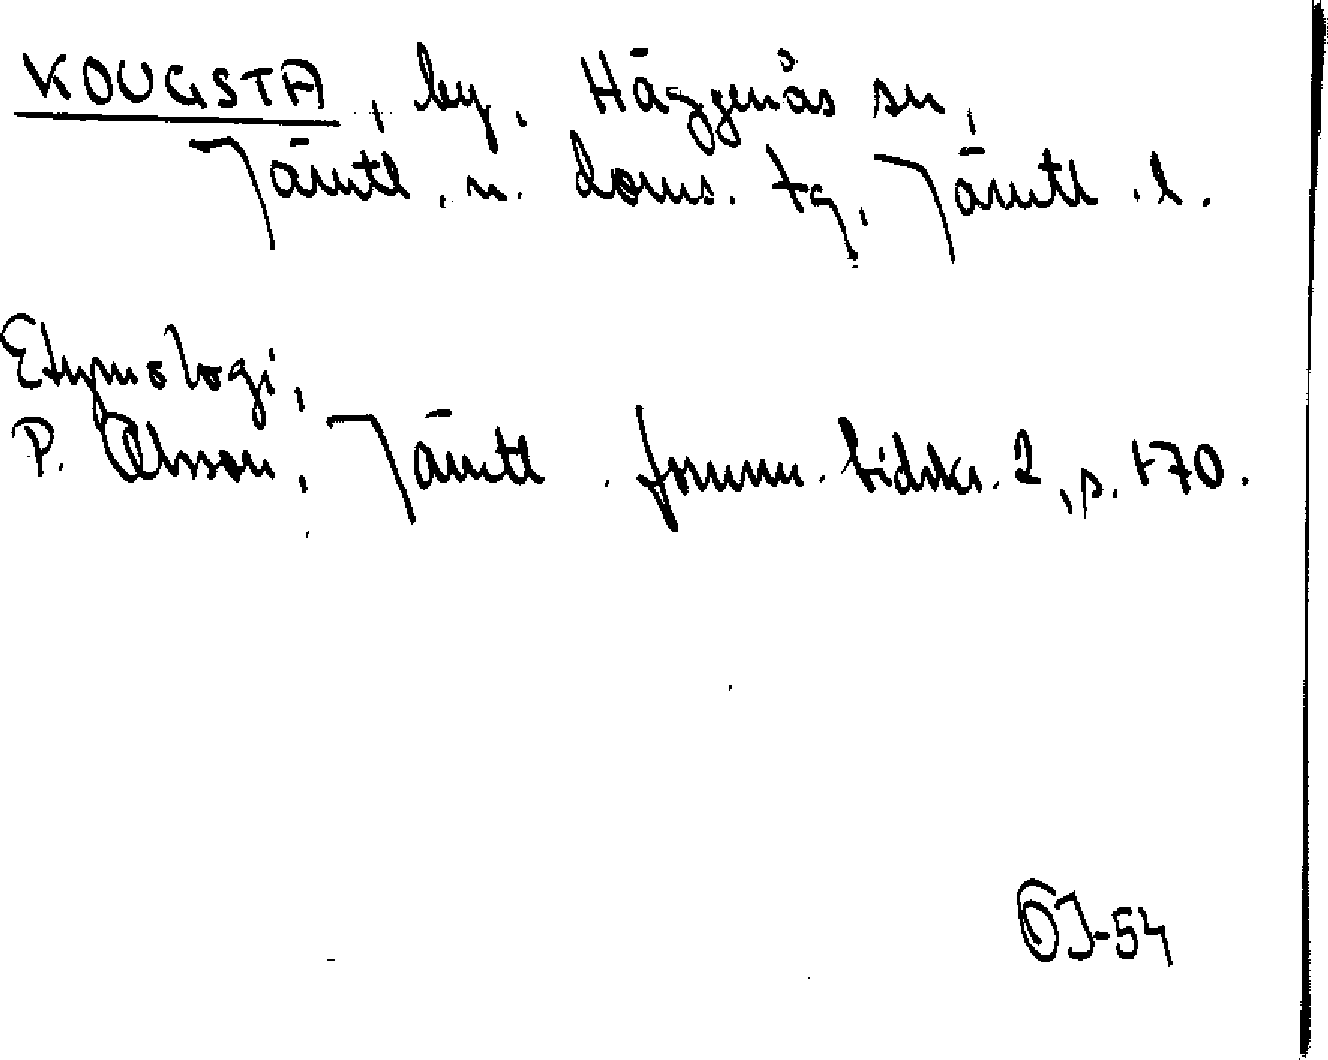 KOUGSTA, by, Häggenås sn,
Jämtl. n. doms. tg, Jämtl. l.
Etymologi,
P. Olsson, Jämtl. fornm. tidskr. 2, s. 170.
ÖJ-54